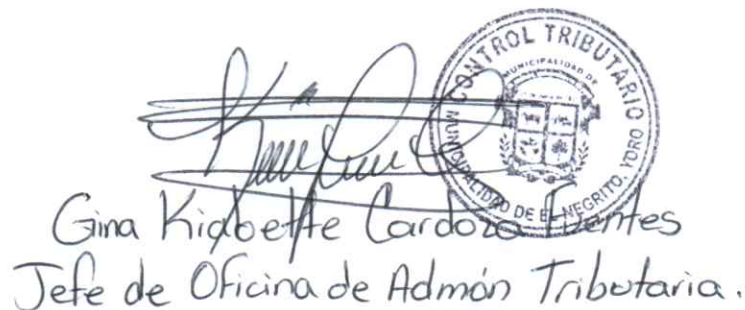 CONTROL TRIBUTARIO
MUNICIPALIDAD DE
MUNICIPALIDAD DE EL NEGRITO, YORO
Gina Kiabette Cardoza Fuentes
Jefe de Oficina de Admón Tributaria.